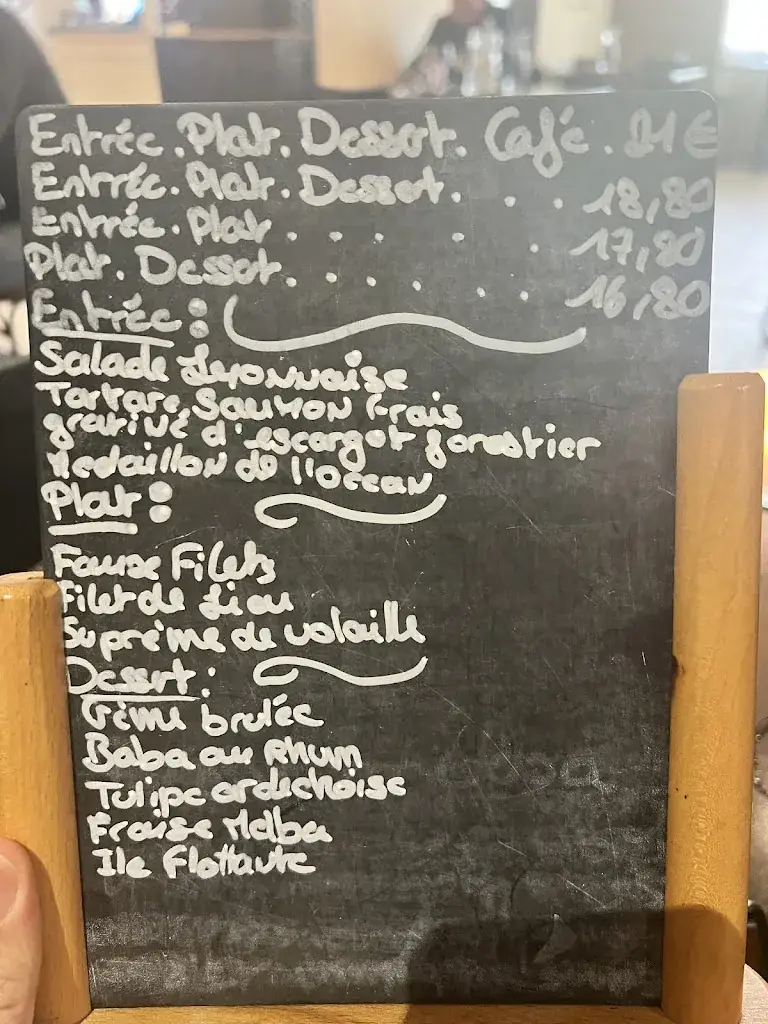 Entrée. Plat. Dessert. Café. 21€
Entrée. Plat. Dessert. . . . 18,80
Entrée. Plat. . . . . 17,80
Plat. Dessert. . . . . . 16,80
Entrée:
Salade Lyonnaise
Tartare Saumon frais
gratiné d'escargot forestier
Medaillon de l'ocean
Plat:
Fause Filets
Filet de Lieu
Suprème de volaille
Dessert:
Crème brulée
Baba au Rhum
Tulipe ardechoise
Fraise Melba
Ile Flottante